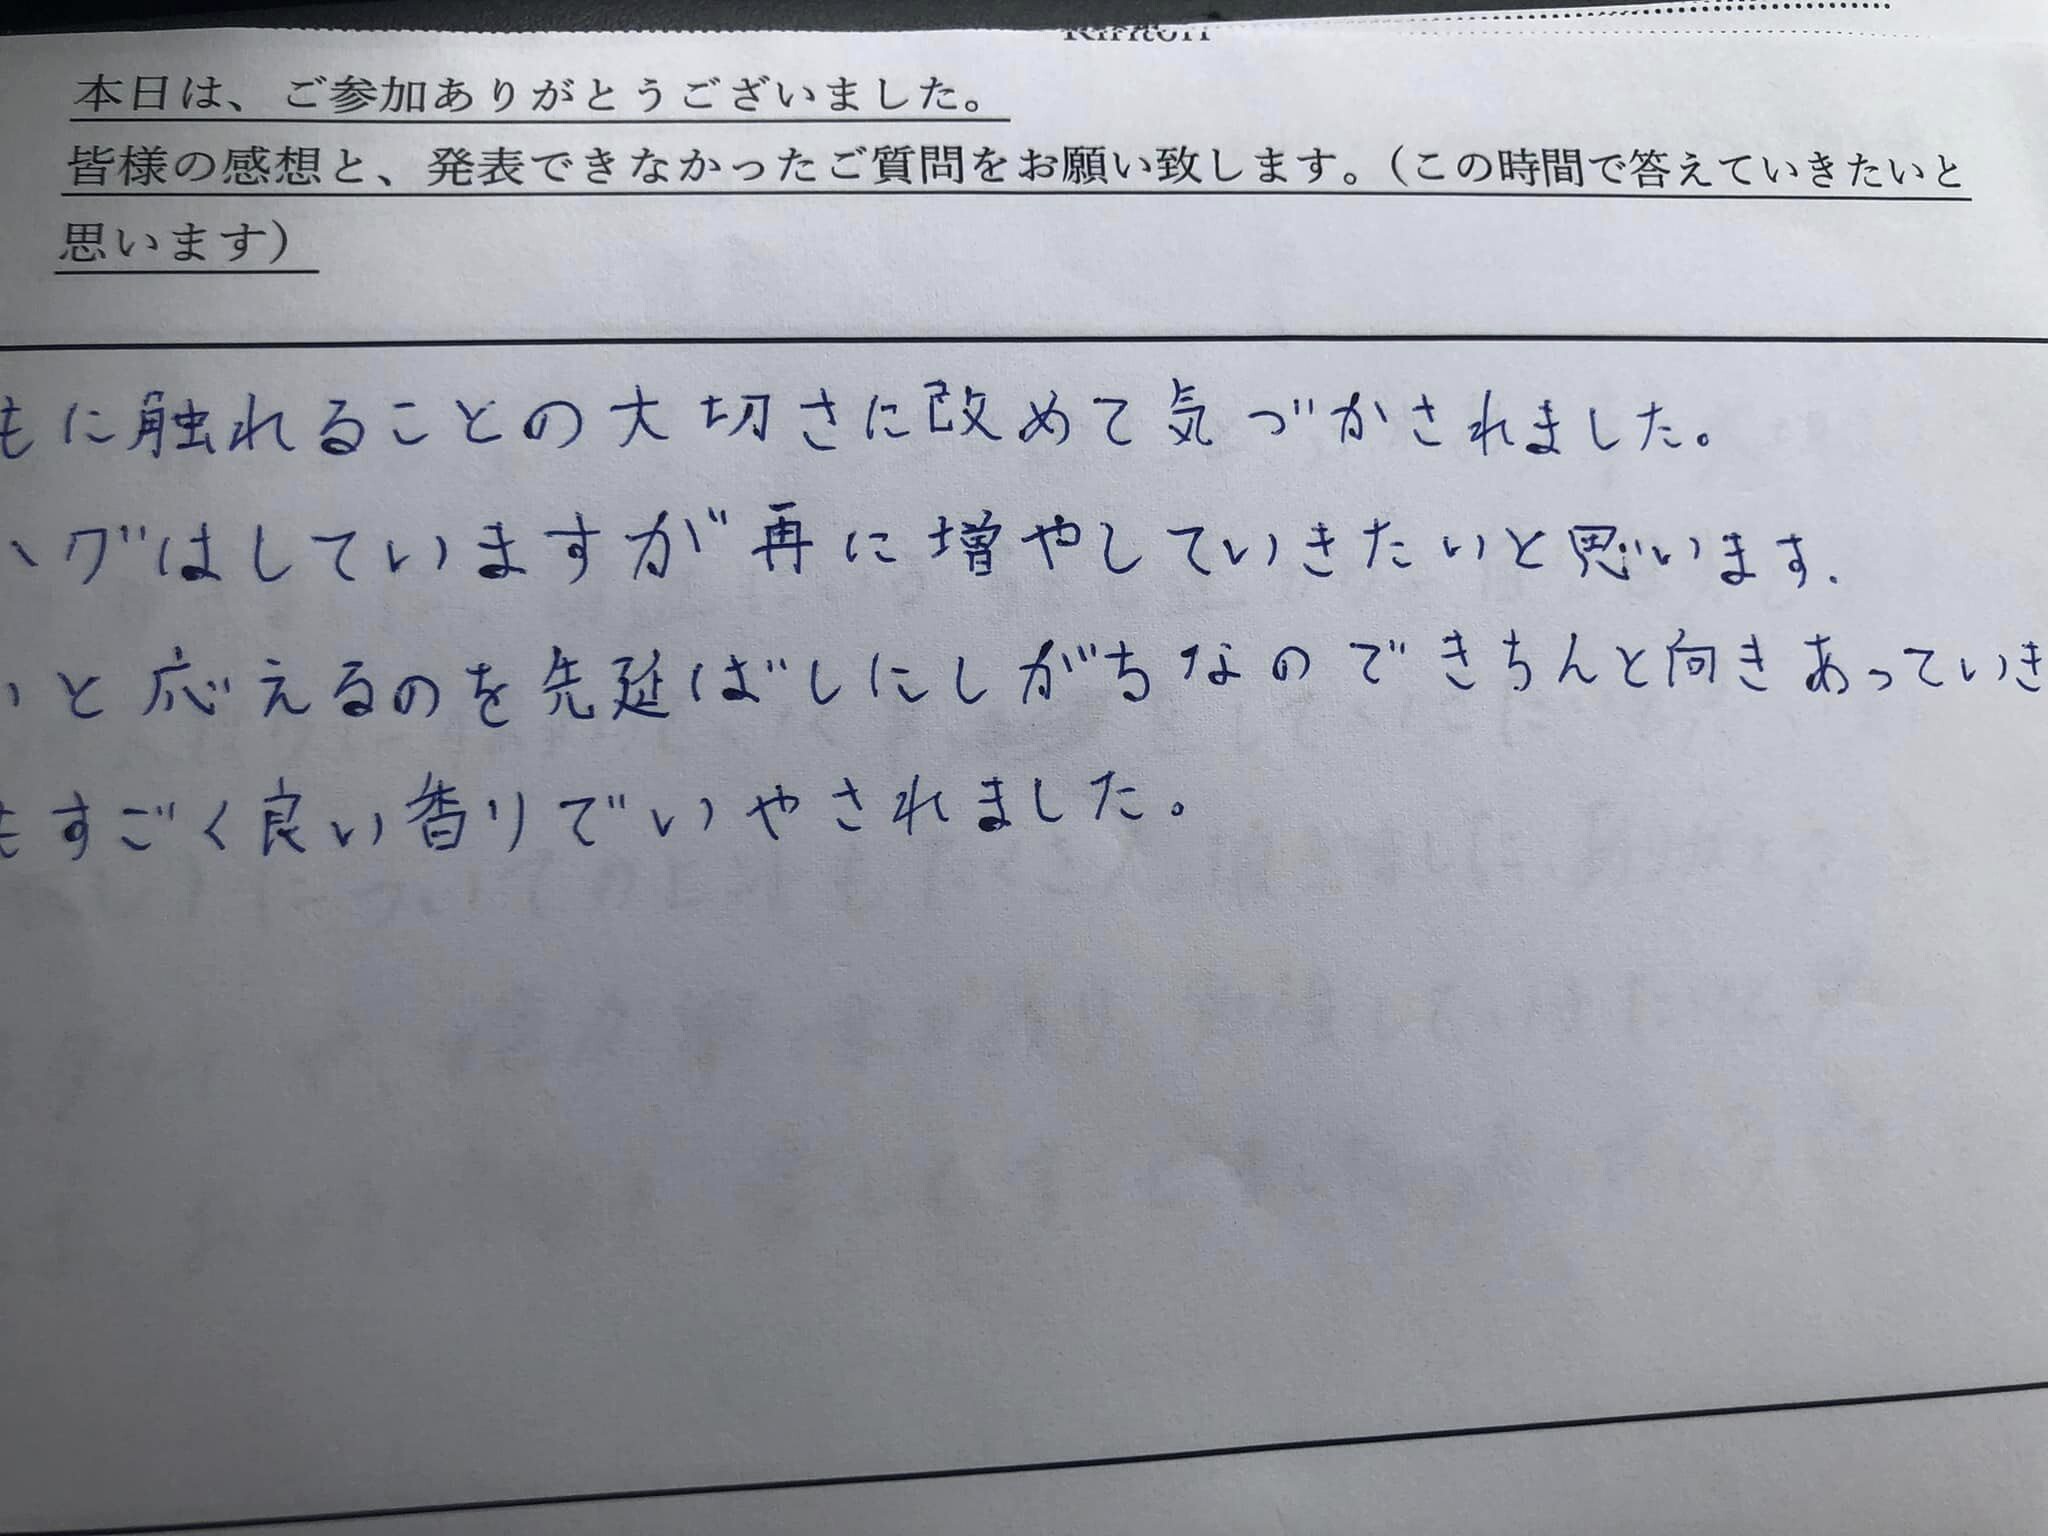 本日は、ご参加ありがとうございました。
皆様の感想と、発表できなかったご質問をお願い致します。（この時間で答えていきたいと
思います）
もに触れることの大切さに改めて気づかされました。
グはしていますが再に増やしていきたいと思います.
と応えるのを先延ばしにしがちなのできちんと向きあっていき
もすごく良い香りでいやされました。